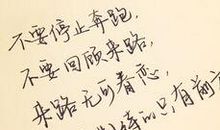 不要停止奔跑,
不要回顾来路,
来路无可眷恋,
的只有前